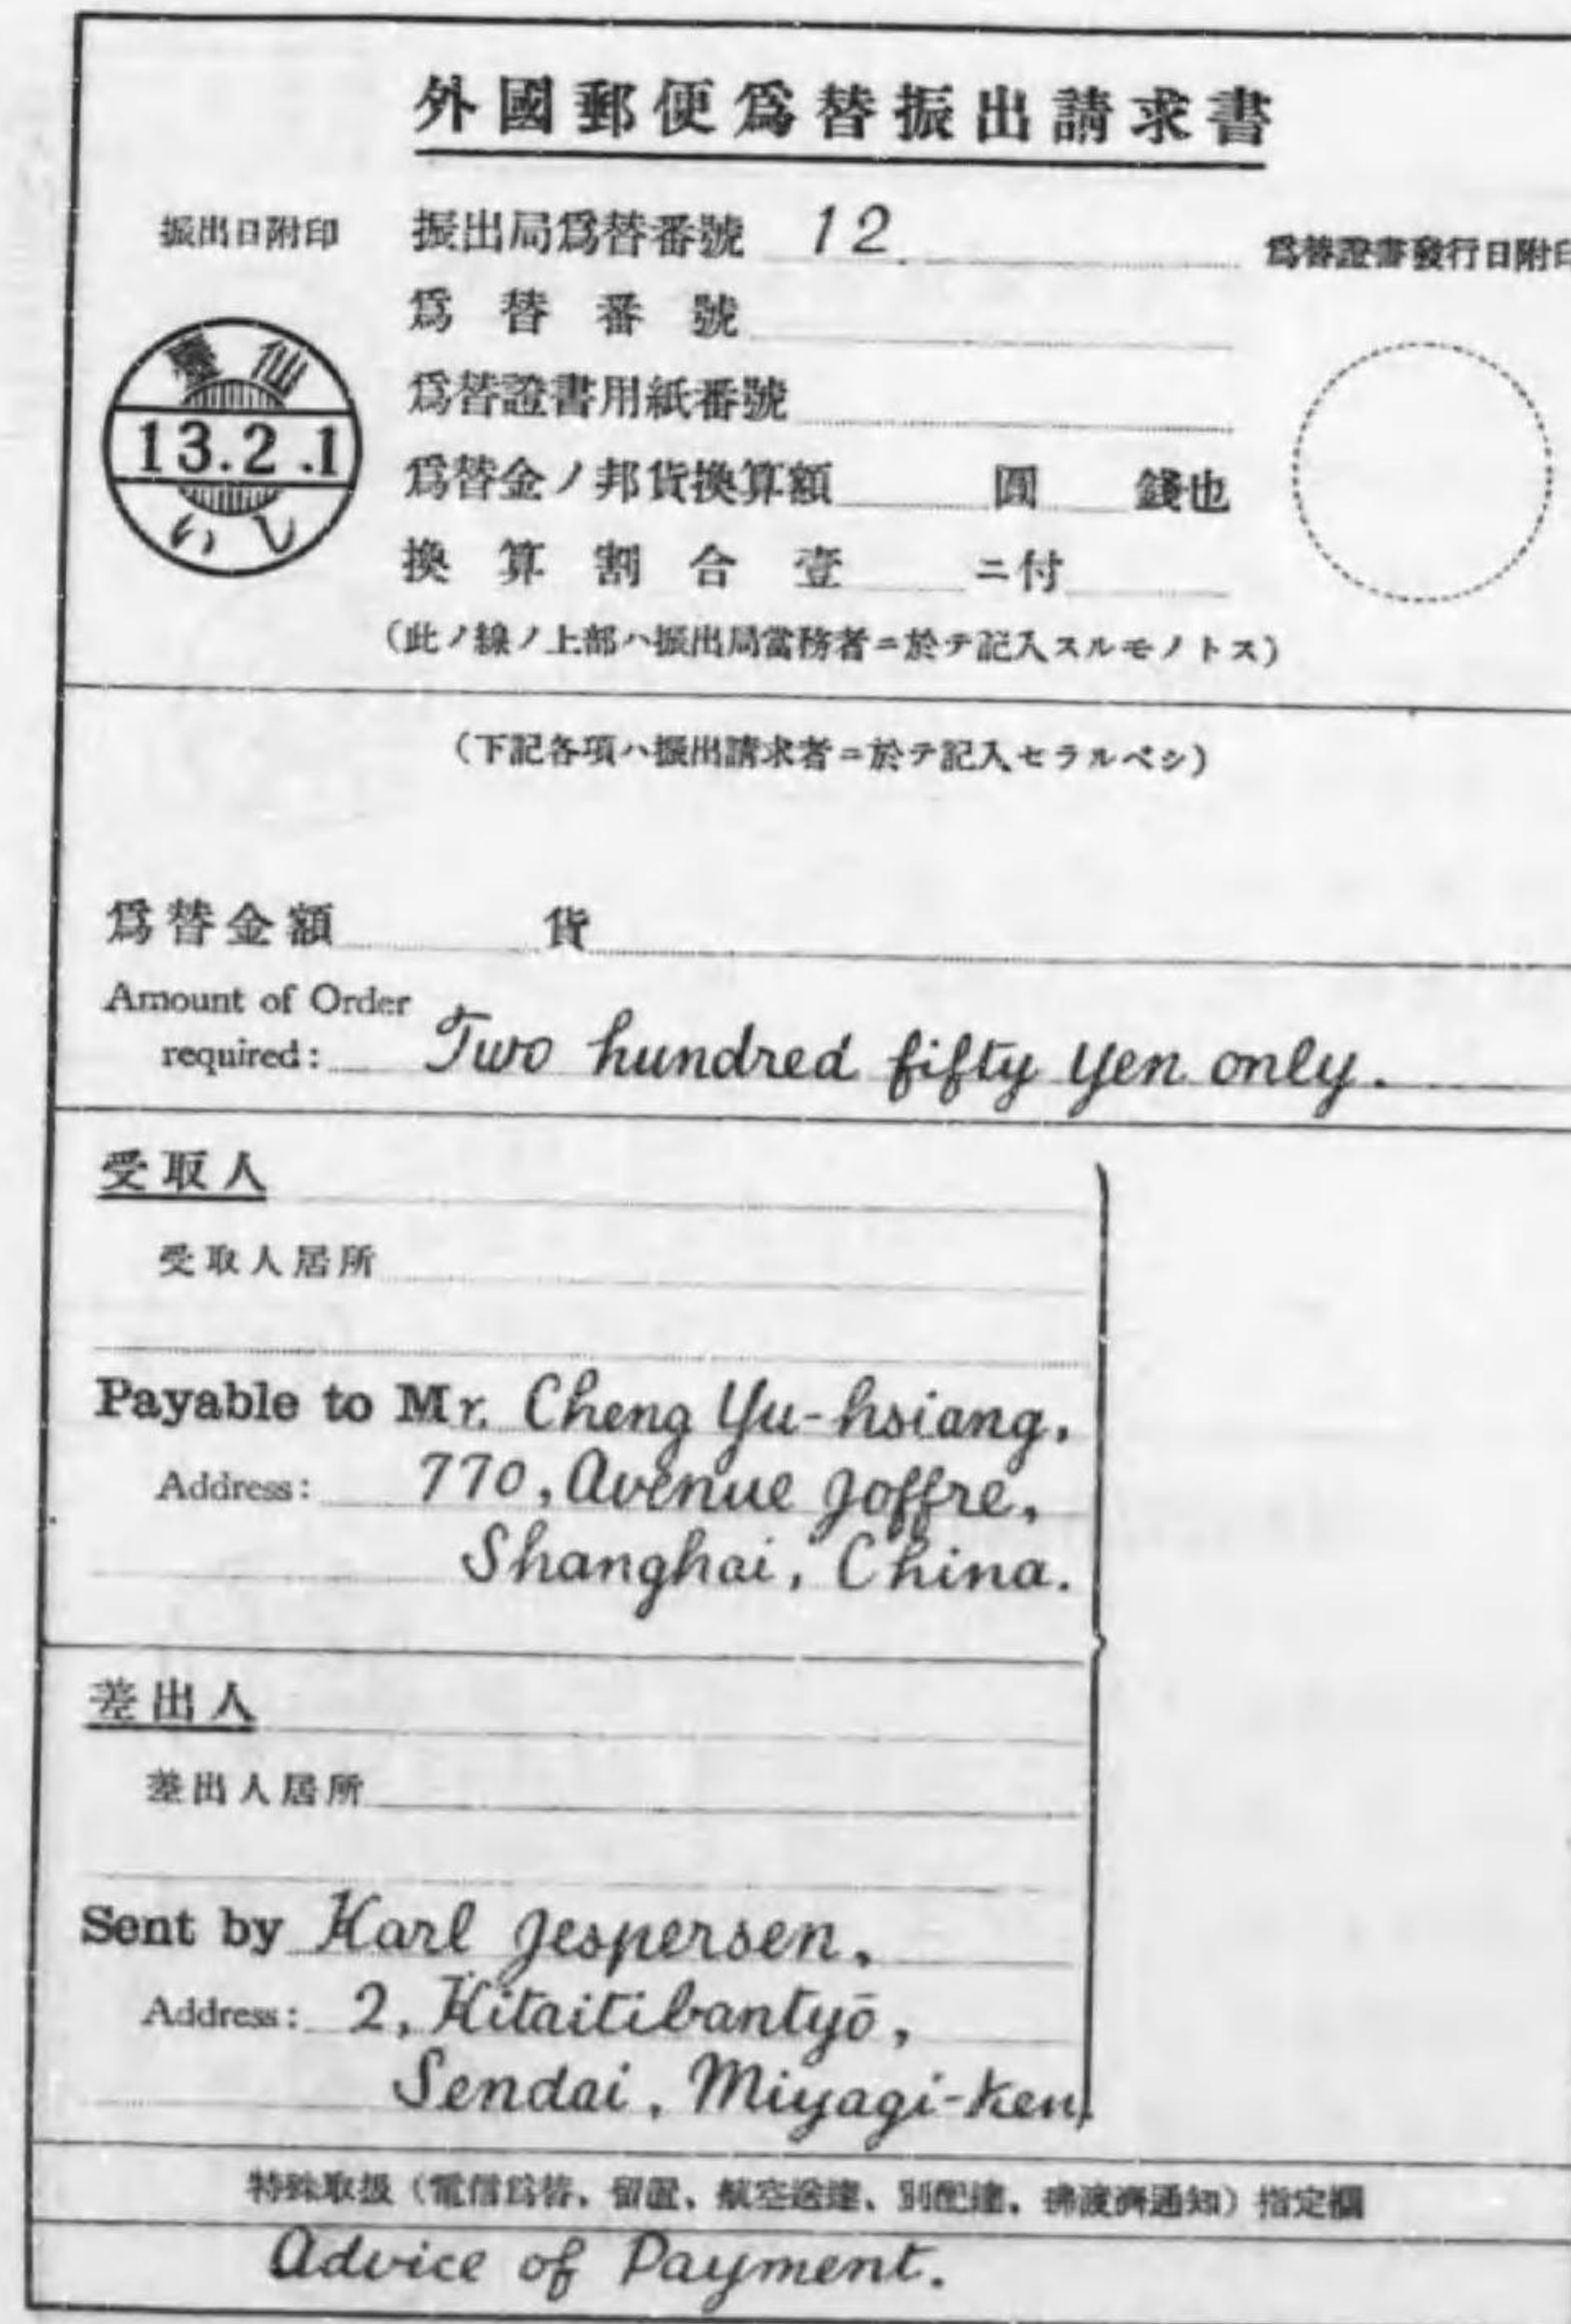 外國郵便爲替振出請求書
振出日附印
振出局爲替番號 12
爲替證書發行日附印
爲替番號
爲替證書用紙番號
爲替金ノ邦貨換算額 圓 錢也
換算割合壹 ニ付
臺仙
13.2.1
いし
(此ノ線ノ上部ハ振出局當務者ニ於テ記入スルモノトス)
(下記各項ハ振出請求者ニ於テ記入セラルベシ)
爲替金額 貨
Amount of Order
required: Two hundred fifty yen only.
受取人
受取人居所
Payable to Mr. Cheng Yu-hsiang,
Address: 770, Avenue Joffre,
Shanghai, China.
差出人
差出人居所
Sent by Karl Jespersen,
Address: 2, Kitaitibantyō,
Sendai, Miyagi-Ken.
特殊取扱(電信爲替、留置、航空送達、別配達、拂渡濟通知)指定欄
Advice of Payment.